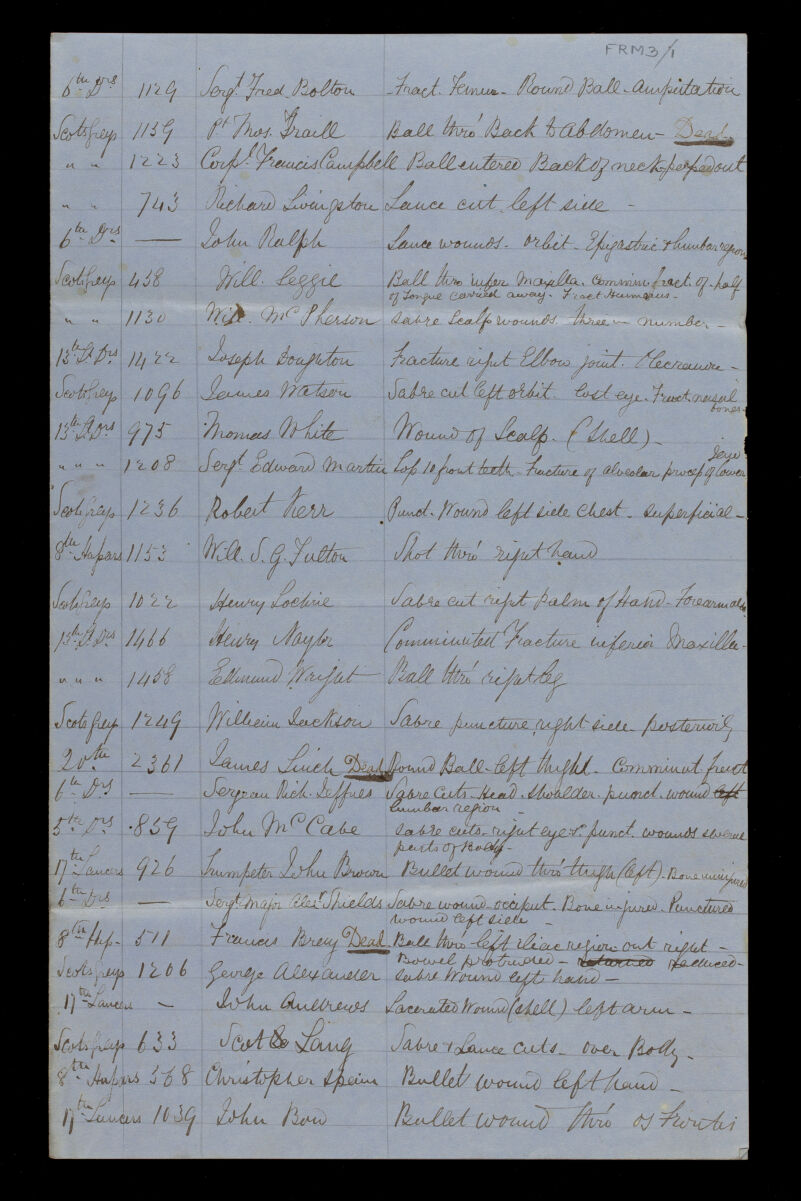 FRM3/1
6th Drs 1129 Sergt Fred Bolton Fract. Femur - Round Ball - amputation
Scots Greys 1139 Pt Thos. Traill Ball thro' Back to Abdomen - Dead -
" " 1223 Corpl. Francis Campbell Ball entered Back of neck - passed out
" " 743 Richard Livingston Lance cut left side -
6th Drs — John Ralph Lance wounds - orbit - Epigastric & lumbar region
Scots Greys 458 Will. Leggie Ball thro' Maxilla. Commin. fract. of - half
of Tongue carried away - Fract Humerus -
" " 1130 Will. McPherson Sabre Scalp wounds three in number -
13th L Drs 1422 Joseph Doughton Fracture right Elbow joint.
Scots Greys 1096 James Watson Sabre cut left orbit. lost eye - Fract. nasal
bones -
13th L Drs 975 Thomas White Wound of Scalp. (Shell) -
" " " 1208 Sergt. Edward Martin Loss 10 front teeth - Fracture of alveolar process of lower
Scots Greys 1236 Robert Kerr Punct. Wound left side chest - superficial -
8th Hussars 1153 Will. S. G. Fulton Shot thro' right hand
Scots Greys 1022 Henry Lochrie Sabre cut right palm of Hand - Forearm also
13th L Drs 1466 Henry Naylor Comminuted Fracture inferior Maxilla -
" " " 1458 Edmund Wright Ball thro' right leg
Scots Greys 1249 William Jackson Sabre puncture right side posteriorly
20th 2361 James Linch Dead Round Ball - left thigh - Comminut. fract
6th Drs — Sergeant Rich. Jeffries Sabre Cuts - Head - Shoulder - punct. wound left
lumbar region -
5th Drs 859 John McCabe Sabre cuts - right eye & punct. wounds several
parts of Body -
17th Lancers 926 Trumpeter John Brown Bullet wound thro' thigh (left) - Bone uninjured
6th Drs — Sergt. Major Alexr Shields Sabre wound - occiput - Bone injured. Punctured
wound left side -
8th Hus - 511 Francis Brey Dead Ball thro - left iliac region out right -
Bowel protruded - returned reduced -
Scots Greys 1206 George Alexander Sabre Wound left hand -
17th Lancers - John Andrews Lacerated Wound (shell) left arm -
Scots Greys 633 Lang Sabre & Lance cuts - over Body -
8th Hussars 568 Christopher Spain Bullet wound left hand -
17th Lancers 1039 John Bow Bullet wound thro os Frontis